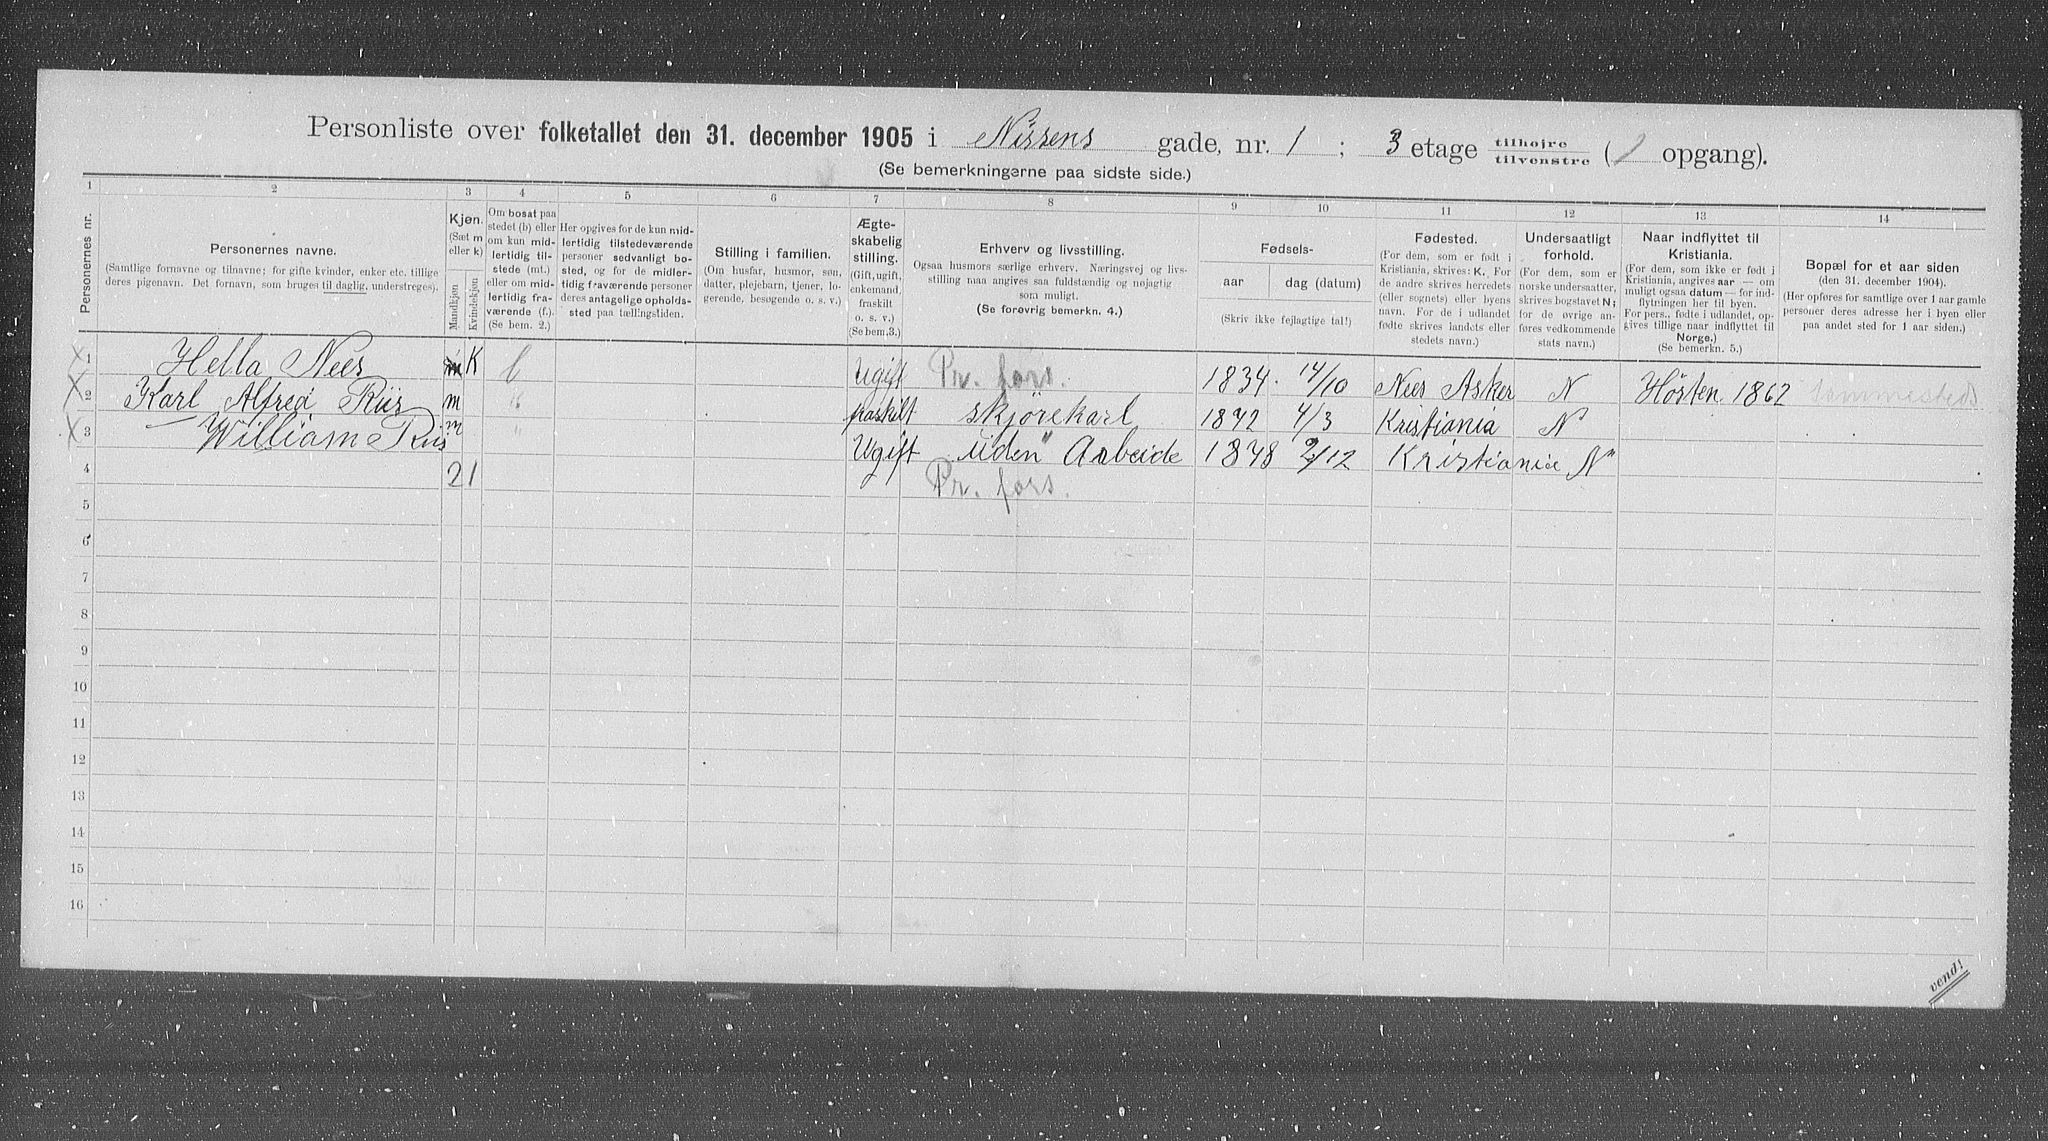 Personliste over folketallet den 31. december 1905 i Nissens gade, nr. 1 ; 3 etage tilhøjre tilvenstre ( 1 opgang).
(Se bemerkningerne paa sidste side.)
1 2 3 4 5 6 7 8 9 10 11 12 13 14
Personernes nr.
Personernes navne.
(Samtlige fornavne og tilnavne; for gifte kvinder, enker etc. tillige
deres pigenavn. Det fornavn, som bruges til daglig, understreges).
Kjøn.
(Sæt m
eller k)
Mandkjøn
Kvindekjøn
Om bosat paa
stedet (b) eller
om kun mid-
lertidig til-
stede (mt.)
eller om mid-
lertidig fra-
værende (f.).
(Se bem. 2.)
Her opgives for de kun mid-
lertidig tilstedeværende
personer sedvanligt bo-
sted, og for de midler-
tidig fraværende personer
deres antagelige opholds-
sted paa tællingstiden.
Stilling i familien.
(Om husfar, husmor, søn,
datter, plejebarn, tjener, lo-
gerende, besøgende o. s. v.)
Ægte-
skabelig
stilling.
(Gift, ugift,
enkemand,
fraskilt
o. s. v.)
(Se bem.3.)
Erhverv og livsstilling.
Ogsaa husmors særlige erhverv. Næringsvej og livs-
stilling maa angives saa fuldstændig og nøjagtig
som muligt.
(Se forøvrig bemerkn. 4.)
Fødsels-
aar
dag (datum)
(Skriv ikke fejlagtige tal!)
Fødested.
(For dem, som er født i
Kristiania, skrives: K. For
de andre skrives herredets
(eller sognets) eller byens
navn. For de i udlandet
fødte skrives landets eller
stedets navn.)
Undersaatligt
forhold.
(For dem, som er
norske undersaatter,
skrives bogstavet N;
for de øvrige an-
føres vedkommende
stats navn.)
Naar indflyttet til
Kristiania.
(For dem, som ikke er født i
Kristiania, angives aar — om
muligt ogsaa datum — for ind-
flytningen her til byen.
For pers., fødte i udlandet, op-
gives tillige naar indflyttet til
Norge.)
(Se bemerkn. 5.)
Bopæl for et aar siden
(den 31. december 1904).
(Her opføres for samtlige over 1 aar gamle
personer deres adresse her i byen eller
paa andet sted for 1 aar siden.)
1 Hella Nees m K b Ugift Pr. fors. 1834. 14/10 Nees Asker N Hösten 1862 Sammesteds
2 Karl Alfred Riis m " fraskilt skjörekarl 1872 4/3 Kristiania N
3 William Riis m " Ugift uden Arbeide 1878 9/12 Kristiania N
4 2 1 Pr. fors.
5
6
7
8
9
10
11
12
13
14
15
16
vend!